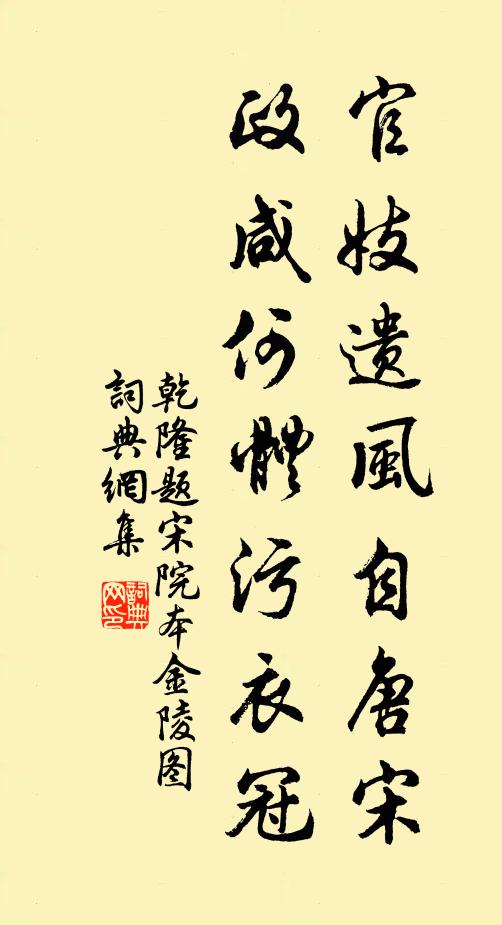 官妓遺風自唐宋
政咸何體污衣冠
乾隆题宋院本金陵图
詞典網集
詞典
网印